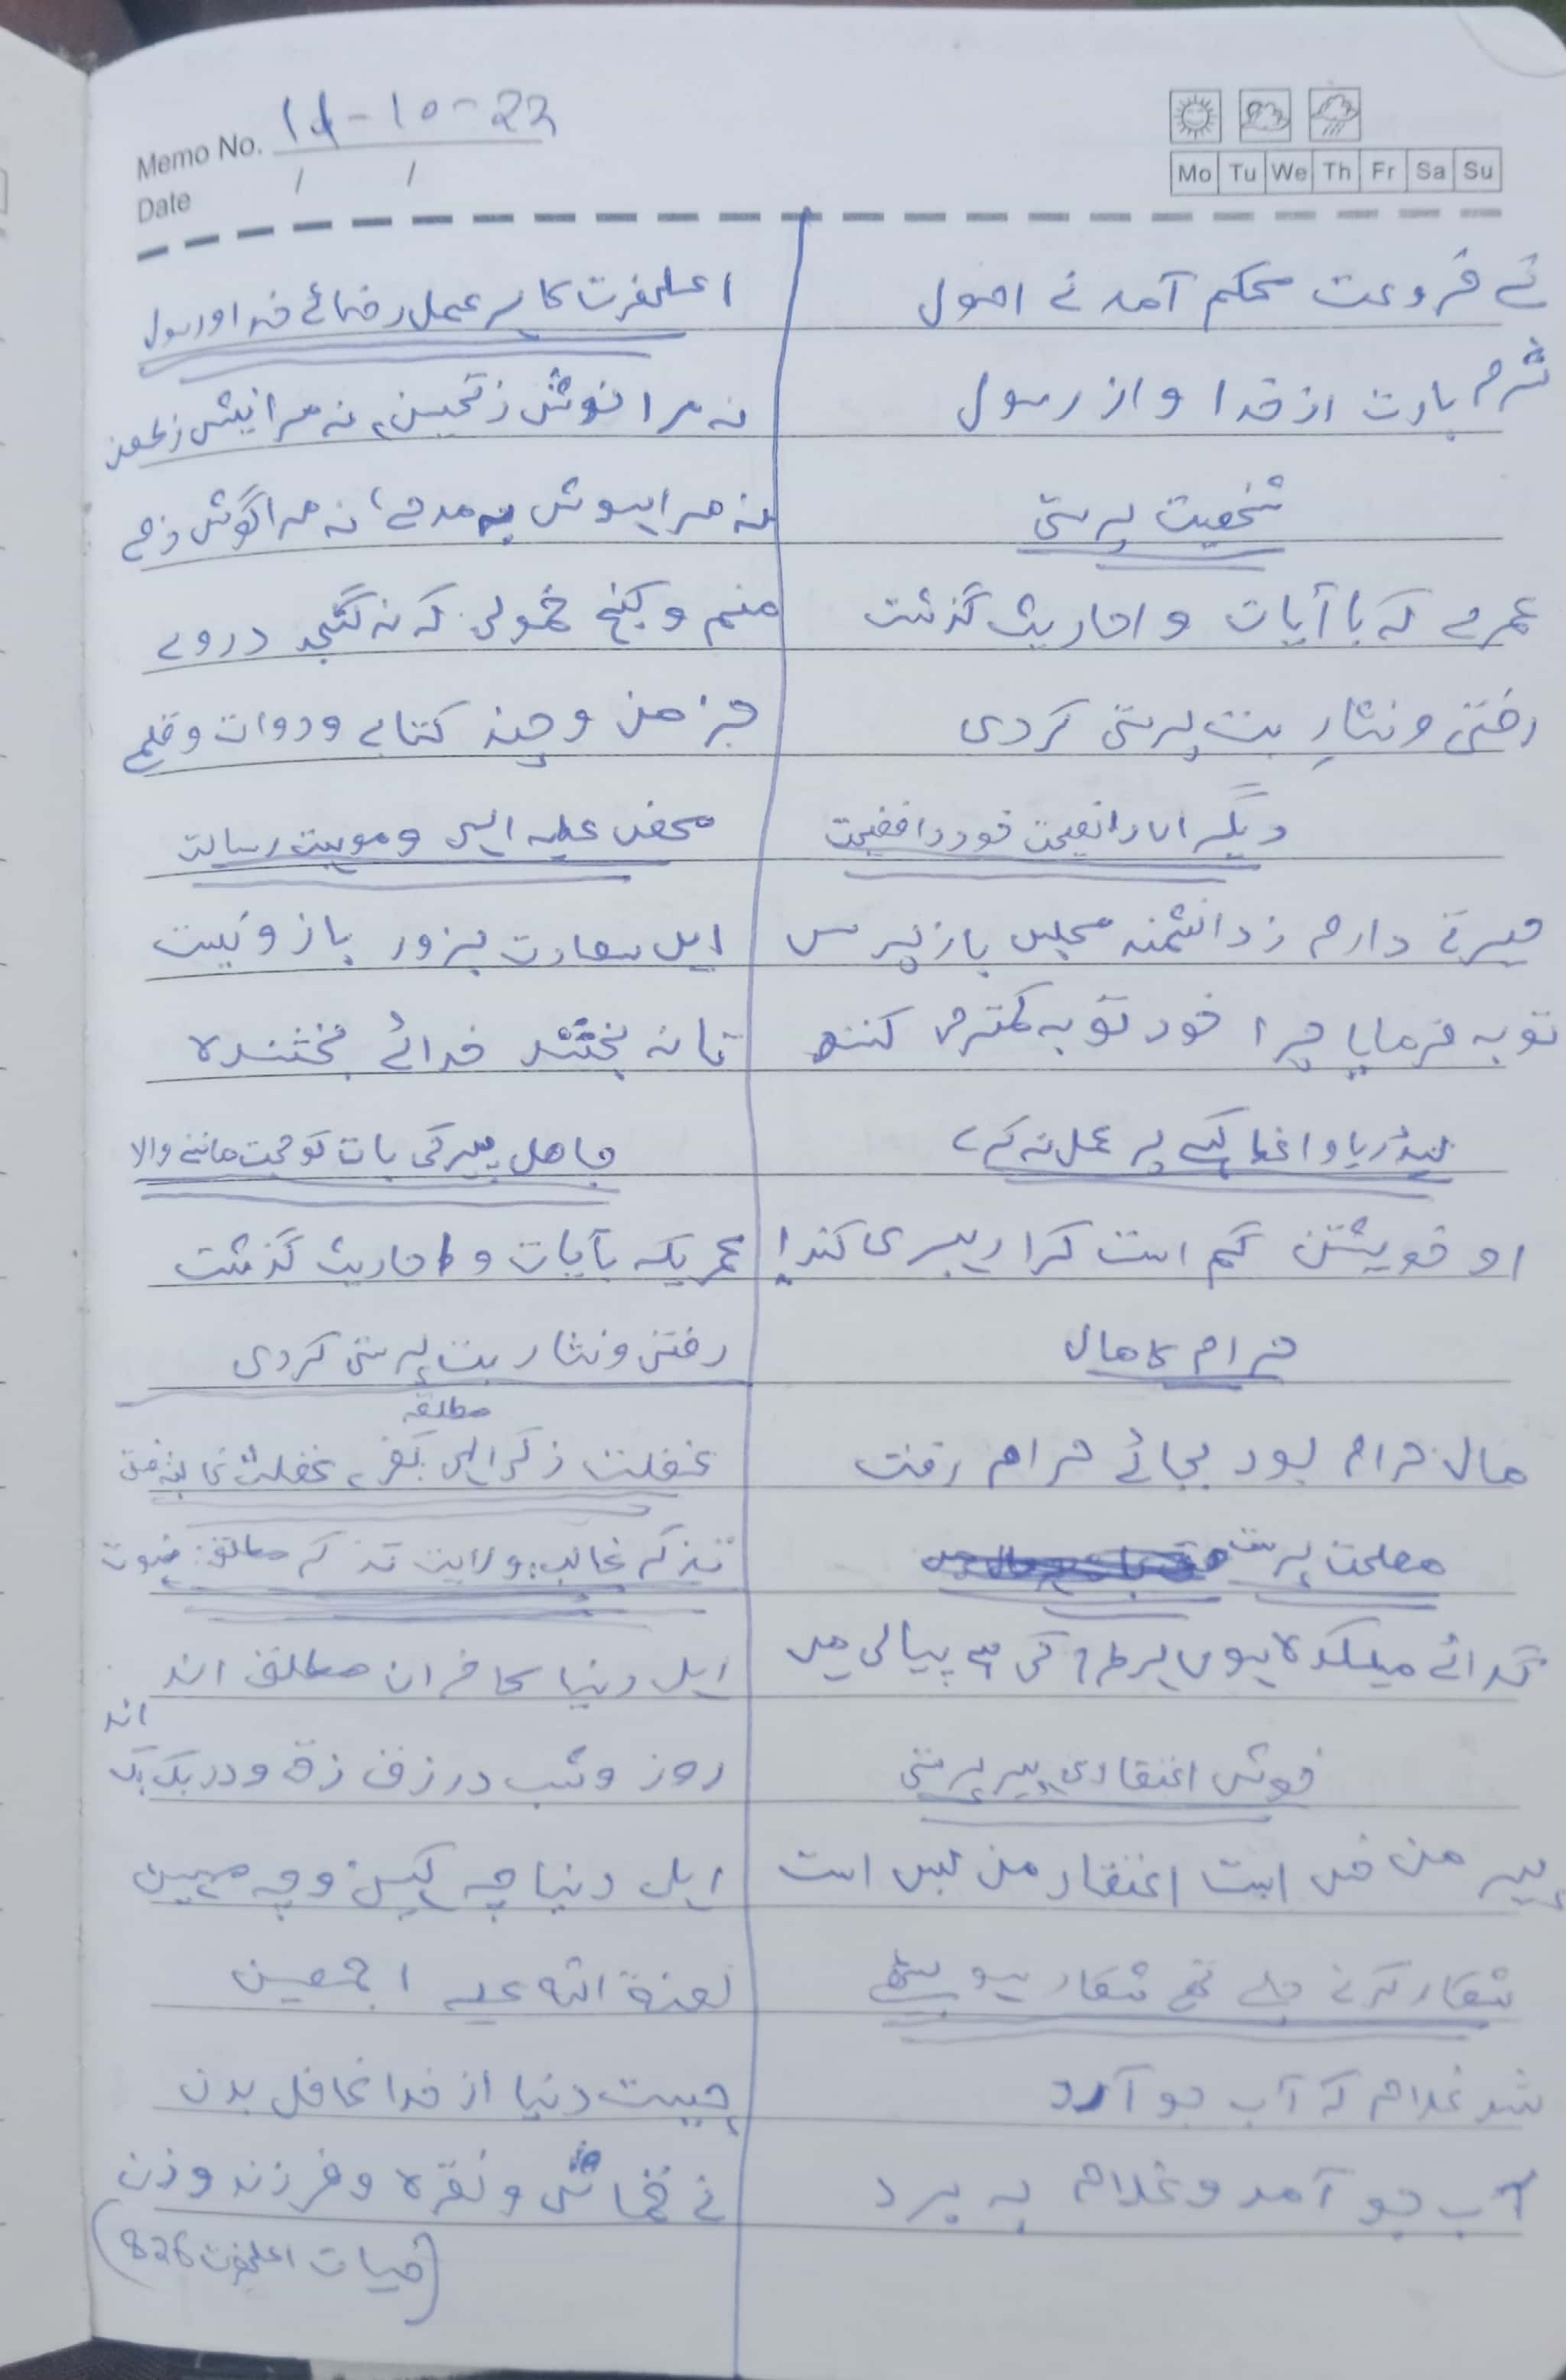 Memo No. 14-10-23
Date / /
Mo Tu We Th Fr Sa Su
نے فروعت محکم آمد نے اصول
شرم بادت از خدا و از رسول
شخصیت پرستی
عمرے کہ با آیات و احادیث گذشت
رفتی و نثارِ بت پرستی کردی
دیگراں را نصیحت خود را فضیحت
حیرتے دارم ز دانشمند مجلس باز پرس
توبہ فرمایا چرا خود توبہ کمتر می کنند
لیڈر یا واعظ کہے پر عمل نہ کرے
او خویشتن گم است کرا رہبری کند!
حرام کا مال
مال حرام بود بجائے حرام رفت
مصلحت پرست
گدائے میکدہ ہوں ہر طرح کی ہے پیالی میں
خوش اعتقادی پیر پرستی
پیر من خس است اعتقاد من بس است
شکار کرنے چلے تھے شکار ہو بیٹھے
شد غلام کہ آب جو آرد
آب جو آمد و غلام بہ برد
اعلیٰحضرت کا ہر عمل رضائے خدا و رسول
نہ مرا نوش ز تحسین، نہ مرا نیش ز طعن
نہ مرا ہوش بہ مدحے، نہ مرا گوش ذمے
منم و کنج خمولی کہ نہ گنجد دروے
جز من و چند کتابے و دوات و قلمے
محض عطیہ الہی و موہبت رسالت
ایں سعادت بزور بازو نیست
تا نہ بخشد خدائے بخشندہ
جاھل پیر کی بات کو حجت ماننے والا
عمریکہ بآیات و احادیث گذشت
رفتی و نثار بت پرستی کردی
مطلقہ
غفلت ذکر الہی کفر، غفلت غالبہ فسق
تذکر غالب: ولایت تذکر مطلق: نبوت
اہل دنیا کافران مطلق اند
اند
روز و شب در زق زق و در بک بک
اہل دنیا چہ کہین و چہ مہین
لعنۃ اللہ علیہ اجمعین
چیست دنیا از خدا غافل بدن
نے قماش و نقرہ و فرزند و زن
(حیات اعلیٰحضرت 826)